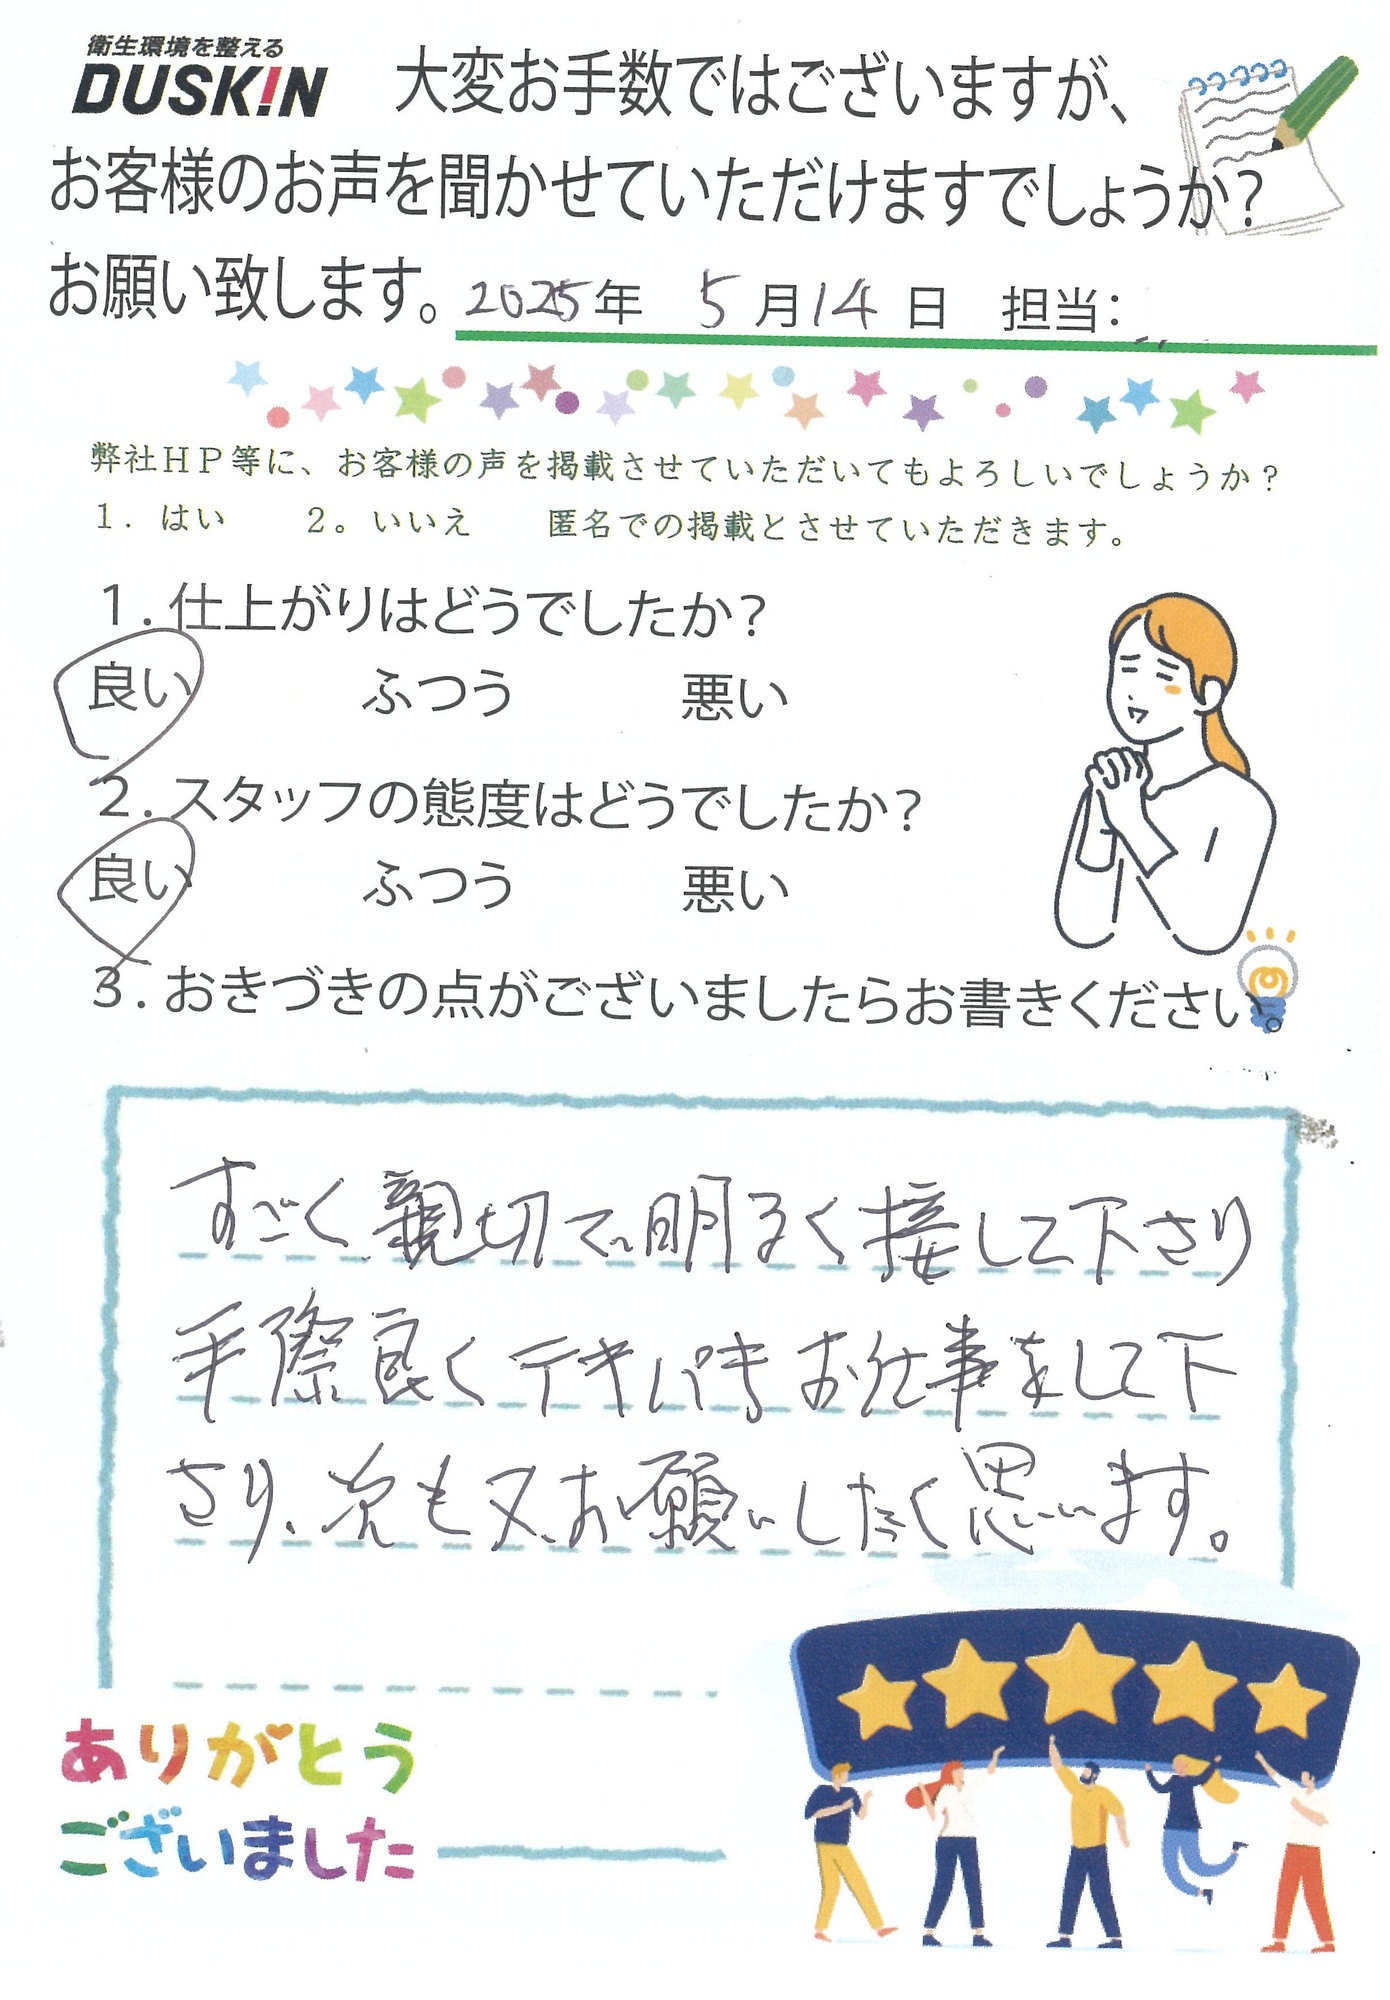 衛生環境を整える
DUSKIN
大変お手数ではございますが、
お客様のお声を聞かせていただけますでしょうか?
お願い致します。2025年 5月14日 担当:
弊社HP等に、お客様の声を掲載させていただいてもよろしいでしょうか?
1. はい 2。いいえ 匿名での掲載とさせていただきます。
1. 仕上がりはどうでしたか?
良い ふつう 悪い
2. スタッフの態度はどうでしたか?
良い ふつう 悪い
3. おきづきの点がございましたらお書きください。
すごく親切で明るく接して下さり
手際良くテキパキお仕事をして下
さり、次も又お願いしたく思います。
ありがとう
ございました